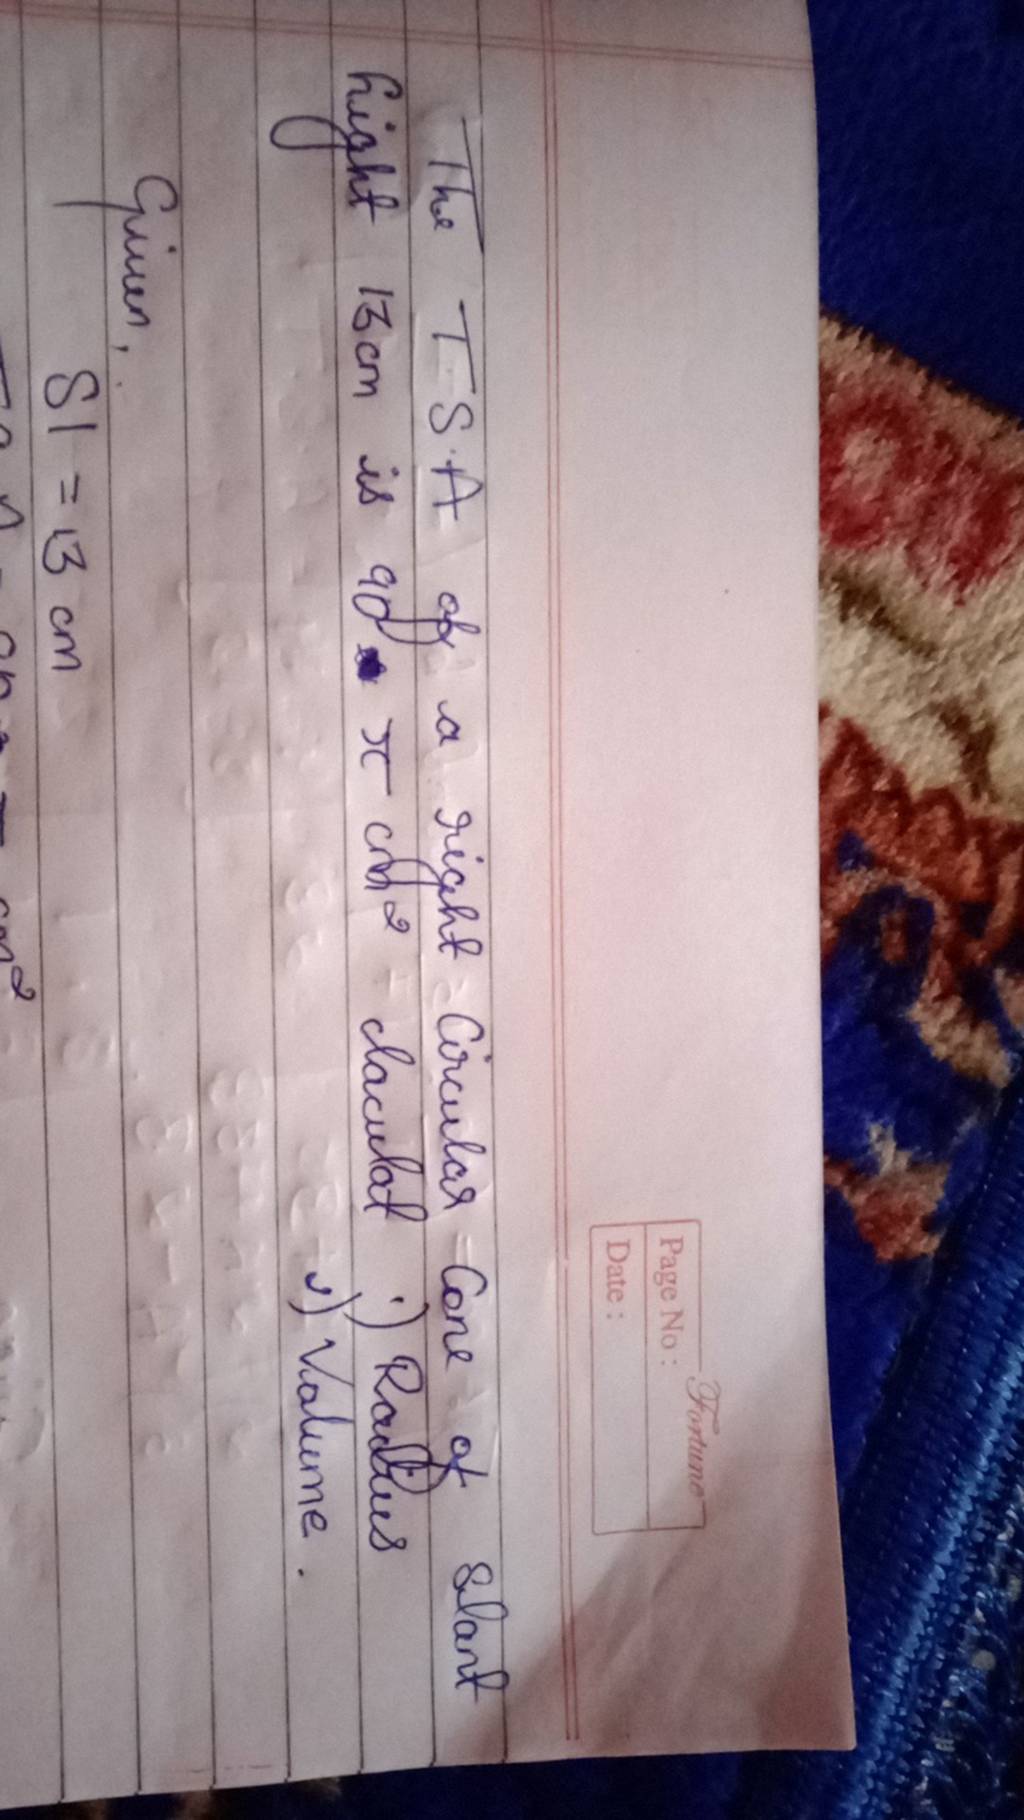 Fortune
Page No:
Date:
The T.S.A of a right Circular Cone of slant
hight 13cm is 90 π cm² claculat i) Radius
ii) Valume.
Given,
Sl = 13 cm
T.S.A = 90 π cm²